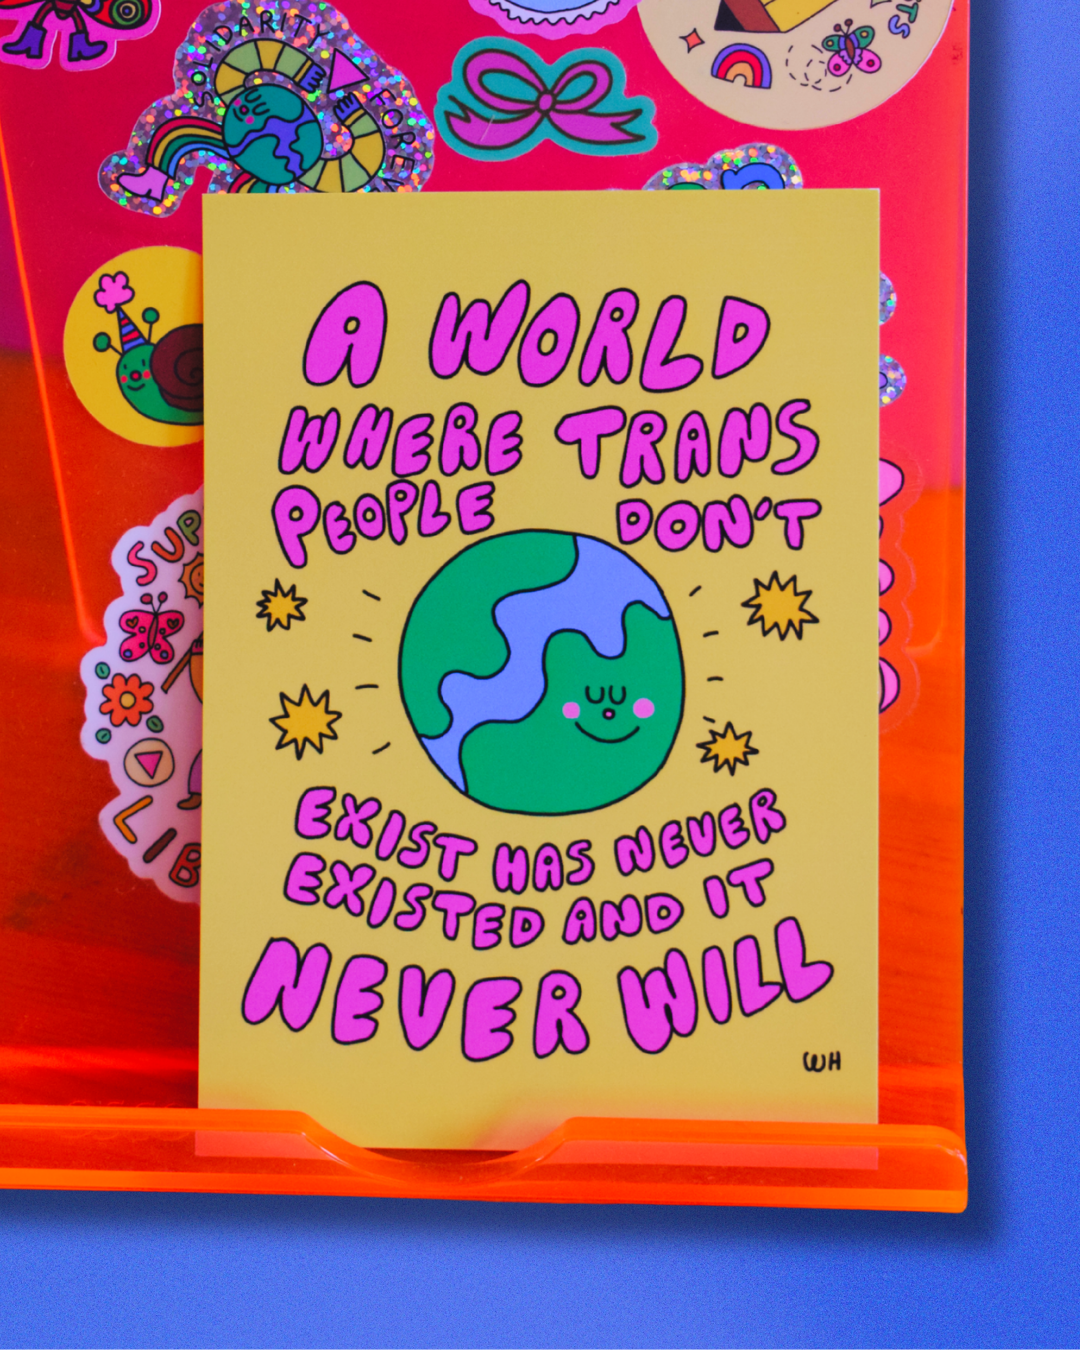 SOLIDARITY
FOREV
A WORLD
WHERE TRANS
PEOPLE DON'T
EXIST HAS NEVER
EXISTED AND IT
NEVER WILL
WH
SUP
LIB